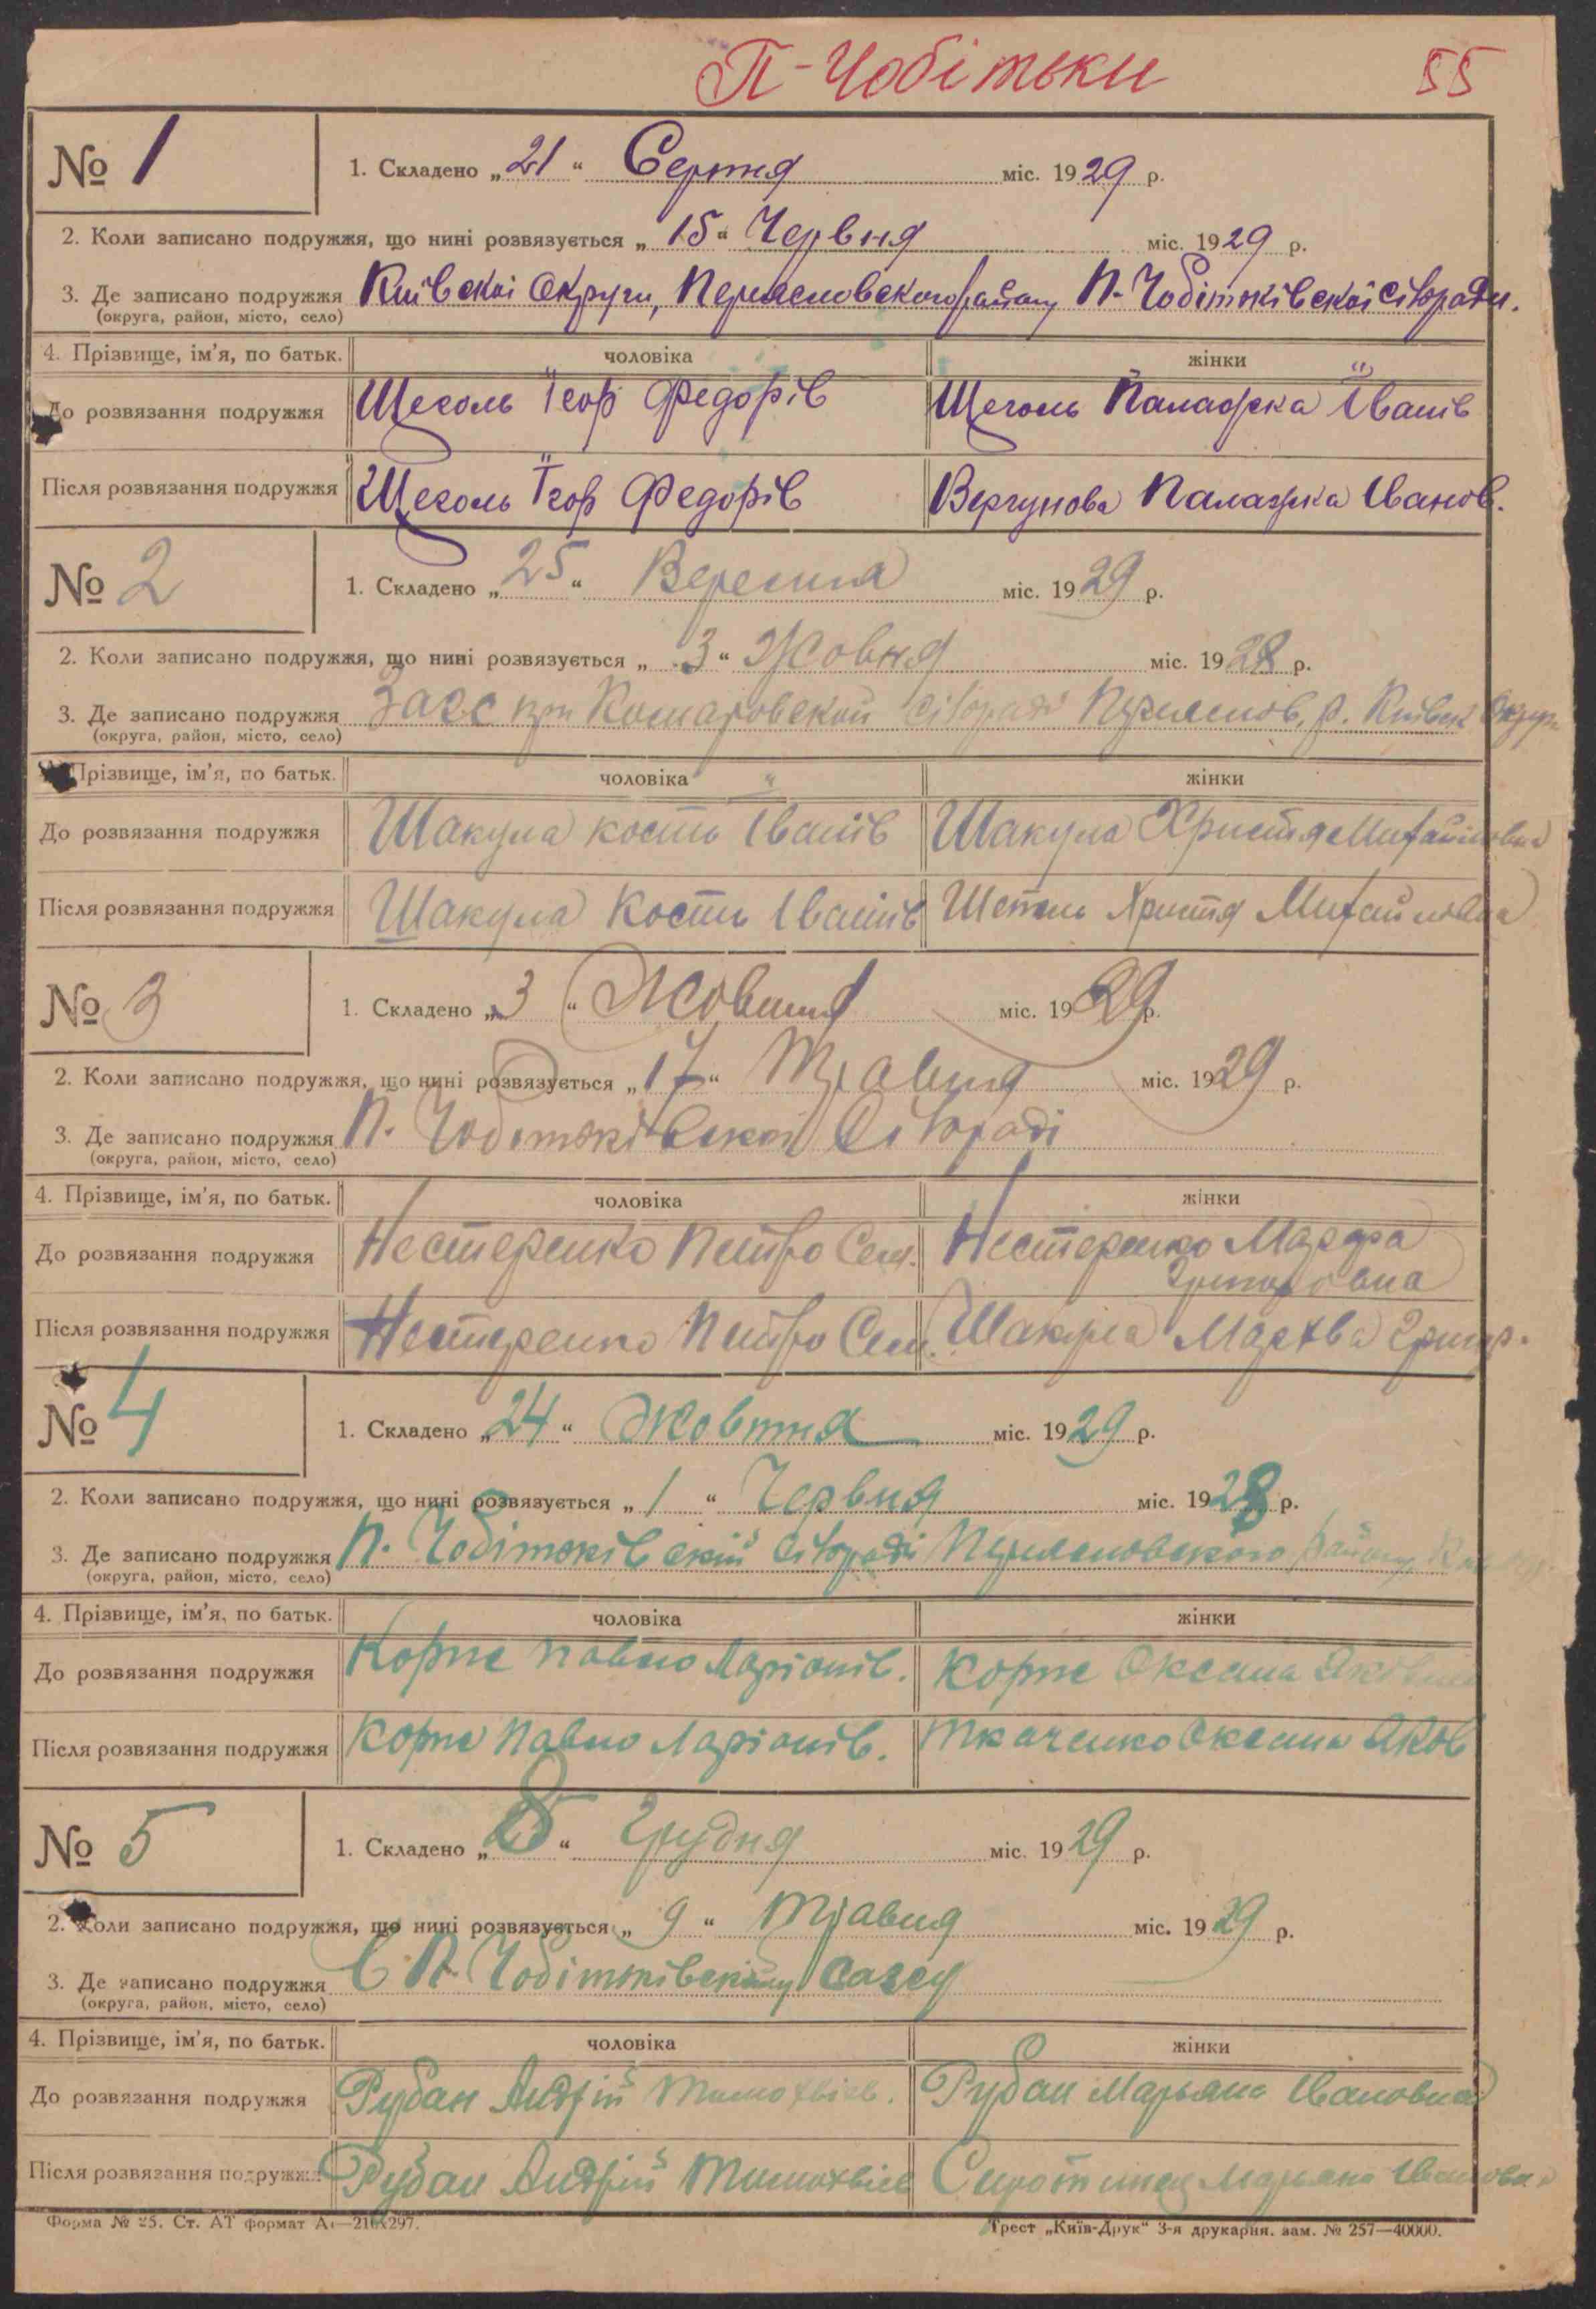 П-Чобітьки 55
№ 1
1. Складено „21“ Серпня міс. 1929 р.
2. Коли записано подружжя, що нині розвязується „15“ Червня міс. 1929 р.
3. Де записано подружжя Київскої Округи, району П-Чобітьківскої сільради.
(округа, район, місто, село)
4. Прізвище, ім'я, по батьк. чоловіка жінки
До розвязання подружжя Щеголь Ігор Федорів Щеголь Палажка Іванів
Після розвязання подружжя Щеголь Ігор Федорів Вергунова Палажка Іванов.
№ 2
1. Складено „25“ Вересня міс. 1929 р.
2. Коли записано подружжя, що нині розвязується „3“ міс. 1928 р.
3. Де записано подружжя Загс при сільраді р. Київск Округи
(округа, район, місто, село)
Прізвище, ім'я, по батьк. чоловіка жінки
До розвязання подружжя Шакула Кость Іванів Шакула Христя Михайловна
Після розвязання подружжя Шакула Кость Іванів Христя Михайловна
№ 3
1. Складено „3“ Жовтня міс. 1929 р.
2. Коли записано подружжя, що нині розвязується „17“ Травня міс. 1929 р.
3. Де записано подружжя П. Чобітьківскої Сільраді
(округа, район, місто, село)
4. Прізвище, ім'я, по батьк. чоловіка жінки
До розвязання подружжя Нестеренко Петро Сем. Нестеренко Марфа
Григоровна
Після розвязання подружжя Нестеренко Петро Сем. Шакула Мархва Григор.
№ 4
1. Складено „24“ Жовтня міс. 1929 р.
2. Коли записано подружжя, що нині розвязується „1“ Червня міс. 1928 р.
3. Де записано подружжя П. Чобітьківский сільраді району
(округа, район, місто, село)
4. Прізвище, ім'я, по батьк. чоловіка жінки
До розвязання подружжя Корж Павло Ларіонів. Корж Оксана
Після розвязання подружжя Корж Павло Ларіонів. Ткаченко Оксана Яков
№ 5
1. Складено „ “ Грудня міс. 1929 р.
2. Коли записано подружжя, що нині розвязується „9“ Травня міс. 1929 р.
3. Де записано подружжя В П. Чобітьківському
(округа, район, місто, село)
4. Прізвище, ім'я, по батьк. чоловіка жінки
До розвязання подружжя Рубан Андрій Тимохвієв. Рубан Марьяна Івановна
Після розвязання подружжя Рубан Андрій Тимохвієв Марьяна Івановна
Форма № 25. Ст. АТ формат А₄—210×297. Трест „Київ-Друк“ 3-я друкарня. зам. № 257—40000.